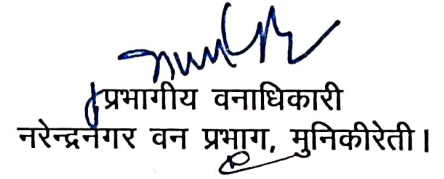 प्रभागीय वनाधिकारी
नरेन्द्रनगर वन प्रभाग, मुनिकीरेती।